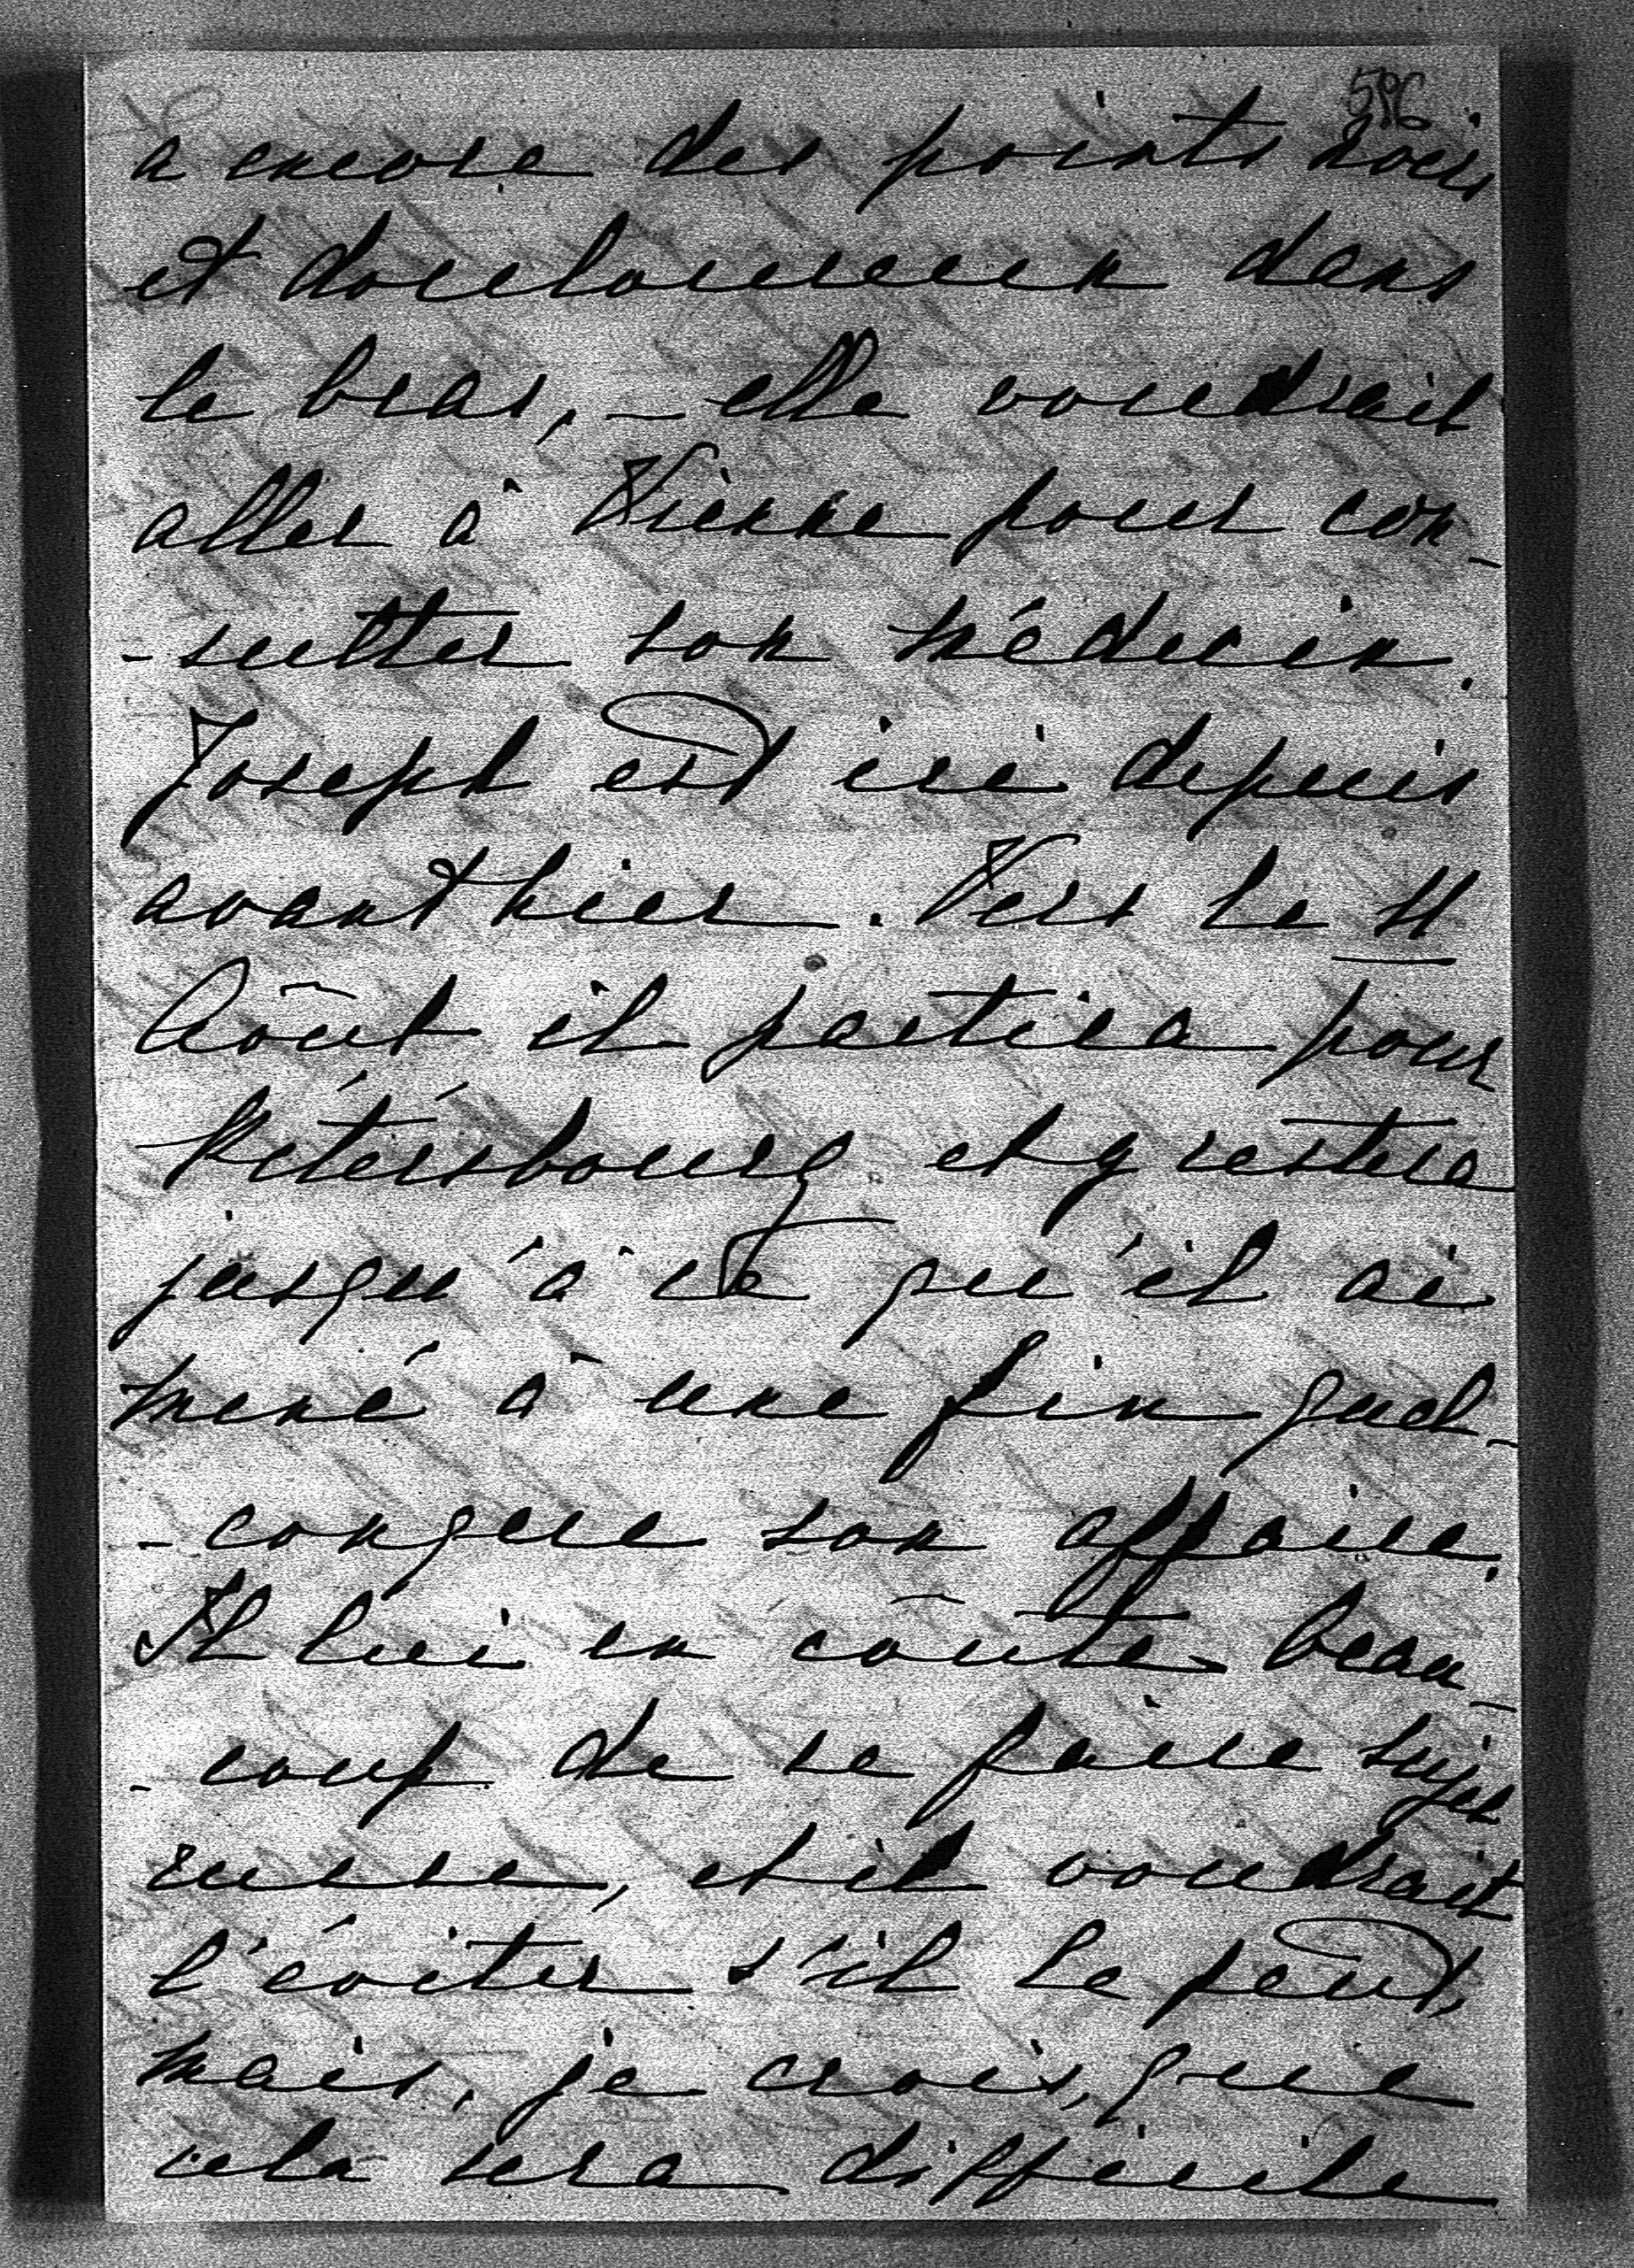 596
a encore des points noirs
et douloureux dans
le bras, - elle voudrait
aller à Vienne pour con-
-sulter son médecin.
Joseph est ici depuis
avant hier. Vers le 11
Août il partira pour
Pétérsbourg et y restera
jusqu'à ce qu'il ai
mené à une fin quel-
-conque son affaire.
Il lui en coûte beau-
-coup de se faire sujet
russe, et il voudrait
l'éviter s'il le peut,
mais, je crois, que
cela sera difficile